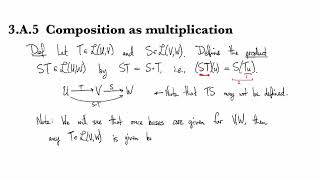 3.A.5 Composition as multiplication
Def Let T∈L(U,V) and S∈L(V,W). Define the product
ST∈L(U,W) by ST = S∘T, i.e., (ST)(u) = S(Tu).
U T→ V S→ W
S∘T
← Note that TS may not be defined.
Note: We will see that once bases are given for V,W, then
any T∈L(V,W) is given b